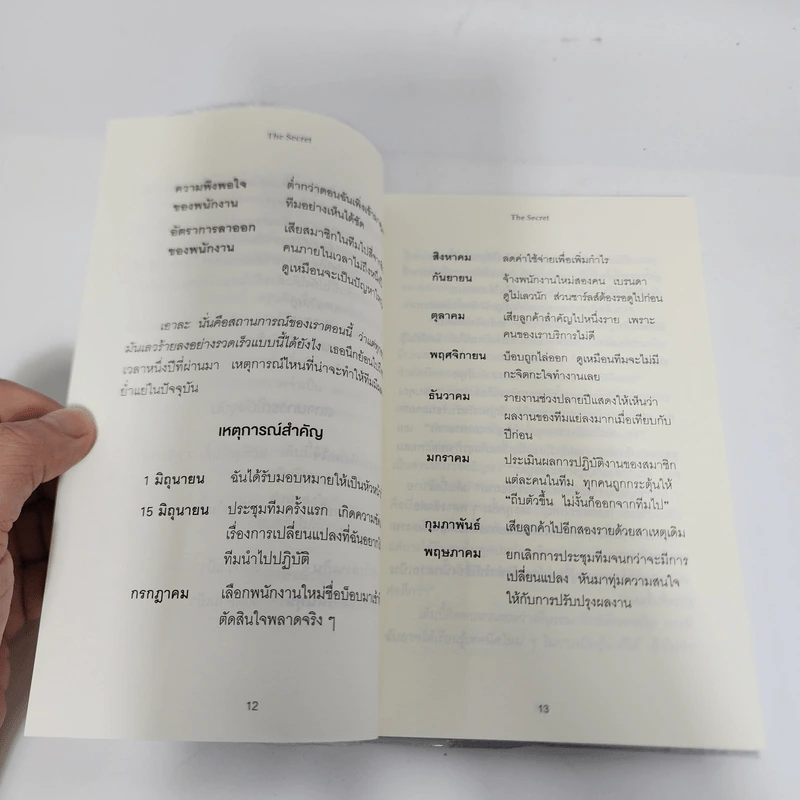 The Secret
ความพึงพอใจ ต่ำกว่าตอนฉันเพิ่งเข้ามา
ของพนักงาน ทีมอย่างเห็นได้ชัด
อัตราการลาออก เสียสมาชิกในทีมไป
ของพนักงาน คนภายในเวลาไม่ถึง
ดูเหมือนจะเป็นปัญหา
เอาละ นั่นคือสถานการณ์ของเราตอนนี้ ว่าแต่
มันเลวร้ายลงอย่างรวดเร็วแบบนี้ได้ยังไง เธอนึกย้อนไป
เวลาหนึ่งปีที่ผ่านมา เหตุการณ์ไหนที่น่าจะทำให้ทีม
ย่ำแย่ในปัจจุบัน
เหตุการณ์สำคัญ
1 มิถุนายน ฉันได้รับมอบหมายให้เป็น
15 มิถุนายน ประชุมทีมครั้งแรก เกิดความ
เรื่องการเปลี่ยนแปลงที่ฉัน
ทีมนำไปปฏิบัติ
กรกฎาคม เลือกพนักงานใหม่ชื่อบ็อบ
ตัดสินใจพลาดจริง ๆ
12
The Secret
สิงหาคม ลดค่าใช้จ่ายเพื่อเพิ่มกำไร
กันยายน จ้างพนักงานใหม่สองคน เบรนดา
ดูไม่เลวนัก ส่วนชาร์ลส์ต้องรอดูไปก่อน
ตุลาคม เสียลูกค้าสำคัญไปหนึ่งราย เพราะ
คนของเราบริการไม่ดี
พฤศจิกายน บ็อบถูกไล่ออก ดูเหมือนทีมจะไม่มี
กะจิตกะใจทำงานเลย
ธันวาคม รายงานช่วงปลายปีแสดงให้เห็นว่า
ผลงานของทีมแย่ลงมากเมื่อเทียบกับ
ปีก่อน
มกราคม ประเมินผลการปฏิบัติงานของสมาชิก
แต่ละคนในทีม ทุกคนถูกกระตุ้นให้
"ถีบตัวขึ้น ไม่งั้นก็ออกจากทีมไป"
กุมภาพันธ์ เสียลูกค้าไปอีกสองรายด้วยสาเหตุเดิม
พฤษภาคม ยกเลิกการประชุมทีมจนกว่าจะมีการ
เปลี่ยนแปลง หันมาทุ่มความสนใจ
ให้กับการปรับปรุงผลงาน
13